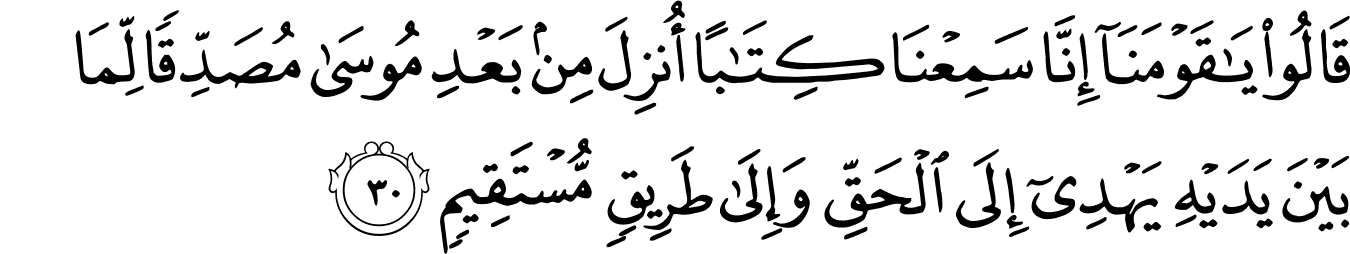 قَالُوا۟ يَـٰقَوْمَنَآ إِنَّا سَمِعْنَا كِتَـٰبًا أُنزِلَ مِنۢ بَعْدِ مُوسَىٰ مُصَدِّقًا لِّمَا
بَيْنَ يَدَيْهِ يَهْدِىٓ إِلَى ٱلْحَقِّ وَإِلَىٰ طَرِيقٍ مُّسْتَقِيمٍ ٣٠